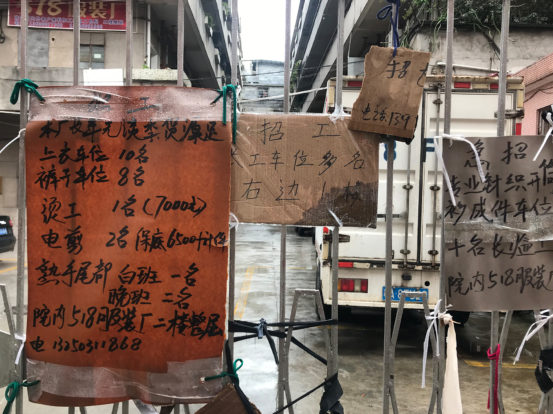 招工
本厂长年无淡季货源足
上衣车位 10名
裤子车位 8名
烫工 1名(7000元)
电剪 2名 保底6500计件
熟手尾部 白班 一名
晚班 二名
院内518服装厂二楼整层
电 13503111868
招工
工车位多名
右边
招
电话1391
急招
专业针织开
成件车位
十名长
院内518服装